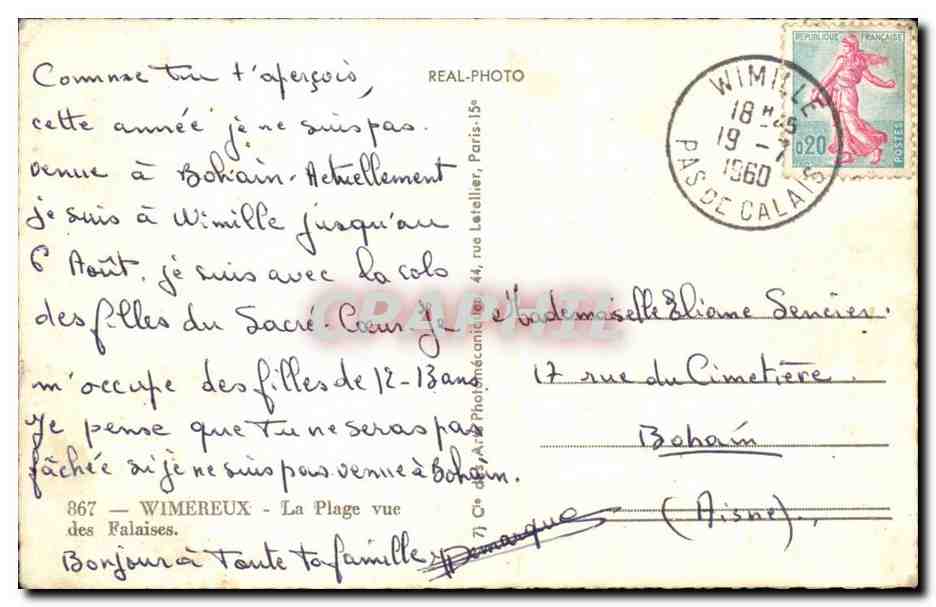 Comme tu t'aperçois,
cette année je ne suis pas
venue à Bohain. Actuellement
je suis à Wimille jusqu'au
6 Août. je suis avec la colo
des filles du Sacré-Cœur. Je
m'occupe des filles de 12-13 ans.
Je pense que tu ne seras pas
fâchée si je ne suis pas venue à Bohain.
867 — WIMEREUX - La Plage vue
des Falaises.
Bonjour à Toute ta famille
REAL-PHOTO
Cie des Arts Photomécaniques 44, rue Letellier, Paris-15e
CARTHEL
WIMILLE
18
19 - 7
1960
PAS DE CALAIS
REPUBLIQUE FRANÇAISE
0,20
POSTES
Mademoiselle Eliane
17 rue du Cimetière
Bohain
(Aisne).